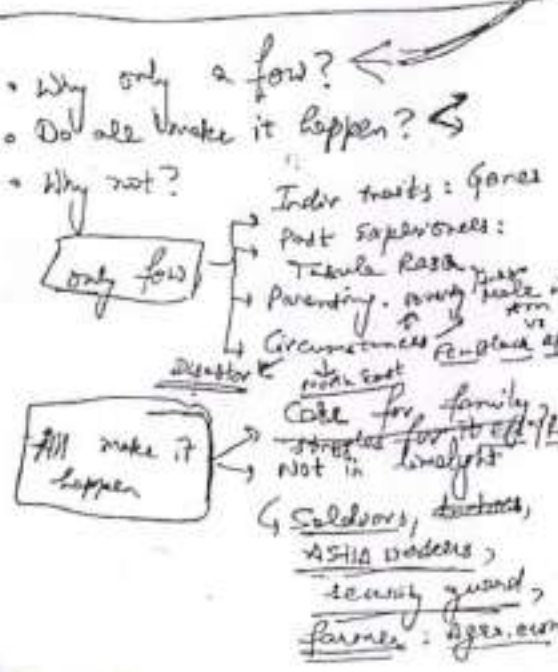 • Why only a few?
• Do all make it happen?
• Why not?
only few
Indiv traits: Genes
Past Experiences:
Tabula Rasa
Parenting. poverty male
vs
Circumstances Black
Disaster North East
All make it
happen
Care for family
struggles for it
Not in limelight
Soldiers, doctors,
ASHA workers,
security guard,
farmer: Agri.